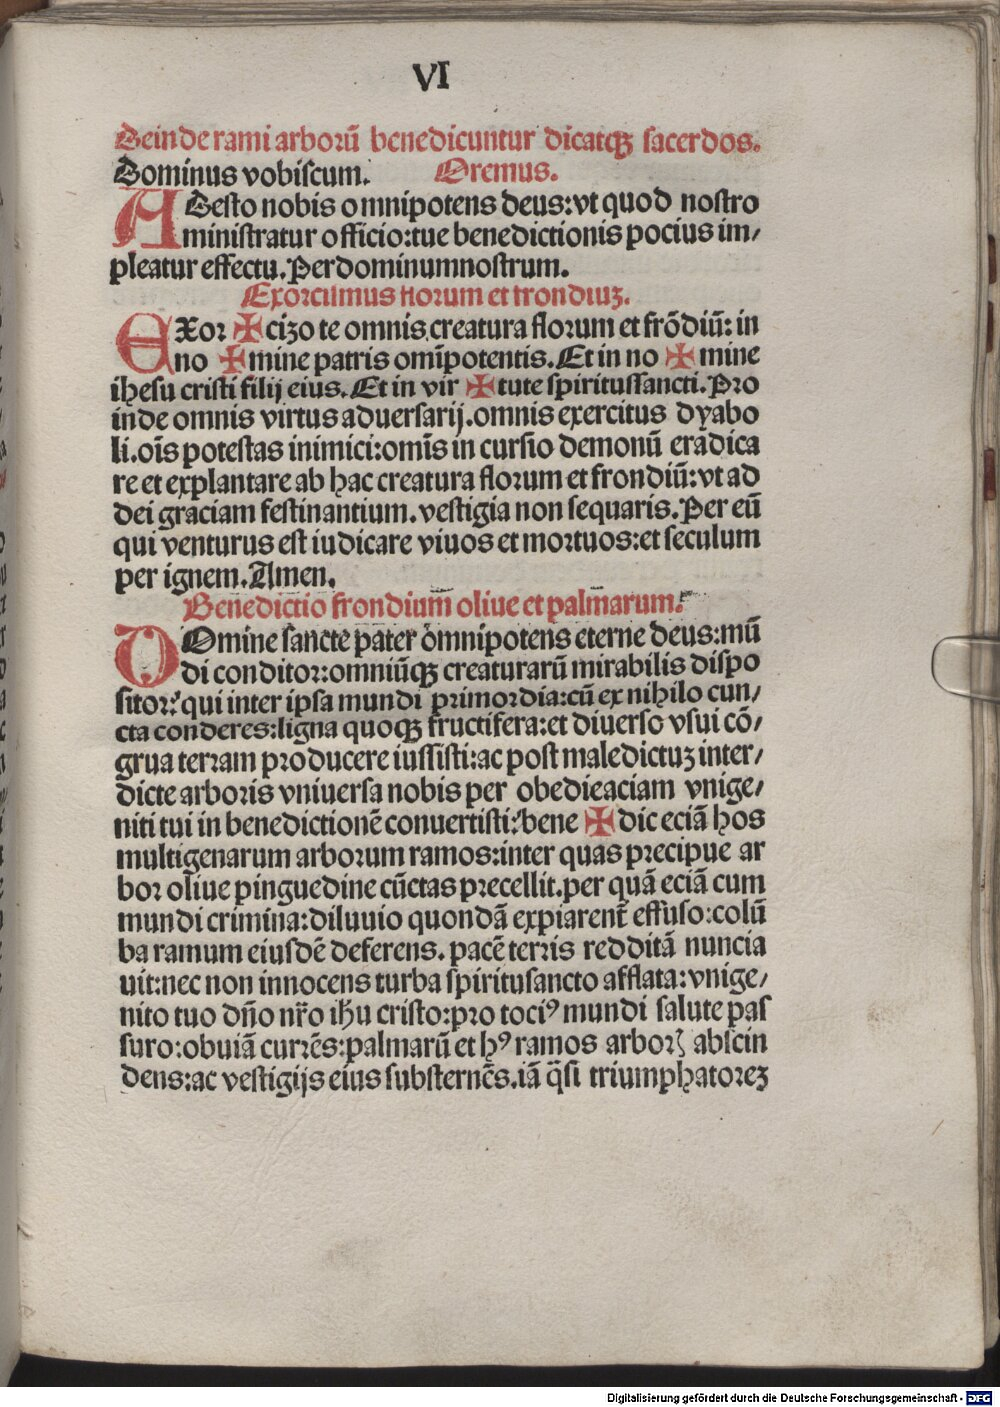 VI
Deinde rami arborū benedicuntur dicatqꝫ sacerdos.
Dominus vobiscum. Oremus.
ADesto nobis omnipotens deus:vt quod nostro
ministratur officio:tue benedictionis pocius im/
pleatur effectu.Per dominumnostrum.
Exorcismus florum et frondiuꝫ.
EXor ✠ cizo te omnis creatura florum et frōdiū: in
no ✠ mine patris omīpotentis.Et in no ✠ mine
ihesu cristi filij eius.Et in vir ✠ tute spiritussancti.Pro
inde omnis virtus aduersarij.omnis exercitus dyabo
li.oīs potestas inimici:omīs in cursio demonū eradica
re et explantare ab hac creatura florum et frondiū:vt ad
dei graciam festinantium.vestigia non sequaris.Per eū
qui venturus est iudicare viuos et mortuos:et seculum
per ignem.Amen.
Benedictio frondium oliue et palmarum.
DOmine sancte pater omnipotens eterne deus:mū
di conditor:omniūqꝫ creaturarū mirabilis dispo
sitor:qui inter ipsa mundi primordia:cū ex nihilo cun/
cta conderes:ligna quoqꝫ fructifera:et diuerso vsui cō/
grua terram producere iussisti:ac post maledictuꝫ inter/
dicte arboris vniuersa nobis per obedieaciam vnige/
niti tui in benedictionē conuertisti:bene ✠ dic eciā hos
multigenarum arborum ramos:inter quas precipue ar
bor oliue pinguedine cūctas precellit.per quā eciā cum
mundi crimina:diluuio quondā expiarent̄ effuso:colū
ba ramum eiusdē deferens.pacē terris redditā nuncia
uit:nec non innocens turba spiritusancto afflata:vnige/
nito tuo dn̄o nr̄o ihu cristo:pro tociꝰ mundi salute pas
suro:obuiā currēs:palmarū et hꝰ ramos arborꝝ abscin
dens:ac vestigijs eius substernēs.iā q̄si triumphatoreꝫ
Digitalisierung gefördert durch die Deutsche Forschungsgemeinschaft - DFG